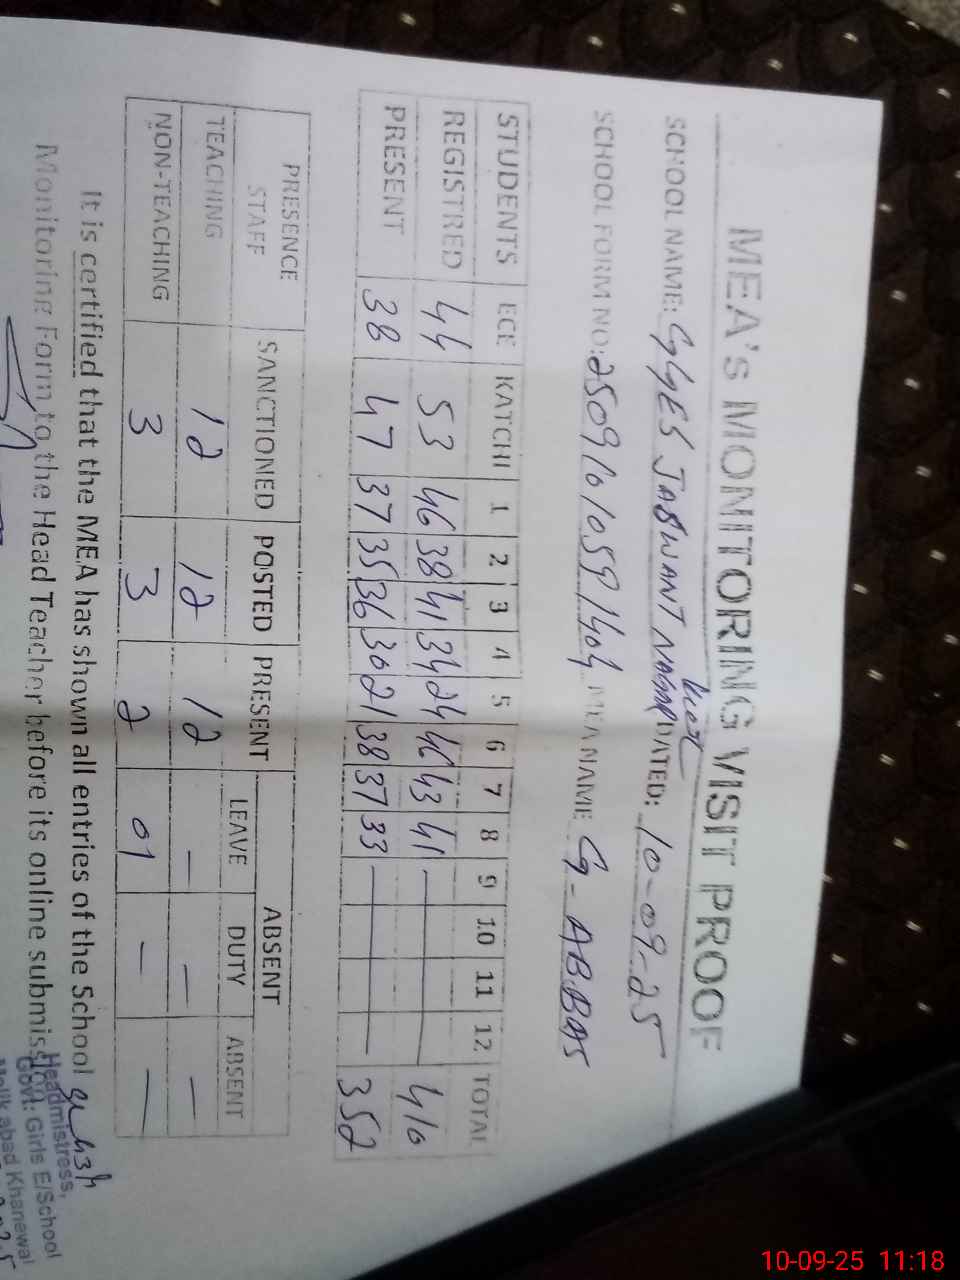 MEA's MONITORING VISIT PROOF
SCHOOL NAME: GGES JASWANT NAGAR DATED: 10-09-25
SCHOOL FORM NO: 25091610591404 MEA NAME G-ABBAS
STUDENTS ECE KATCHI 1 2 3 4 5 6 7 8 9 10 11 12 TOTAL
REGISTRED 44 53 46 38 41 34 24 46 43 41 — 410
PRESENT 38 47 37 35 36 30 21 38 37 33 — 352
PRESENCE STAFF SANCTIONED POSTED PRESENT ABSENT
LEAVE DUTY ABSENT
TEACHING 12 12 12 — — —
NON-TEACHING 3 3 2 01 — —
It is certified that the MEA has shown all entries of the School
Monitoring Form to the Head Teacher before its online submission
Headmistress,
Govt: Girls E/School
Malik abad Khanewal
10-09-25 11:18